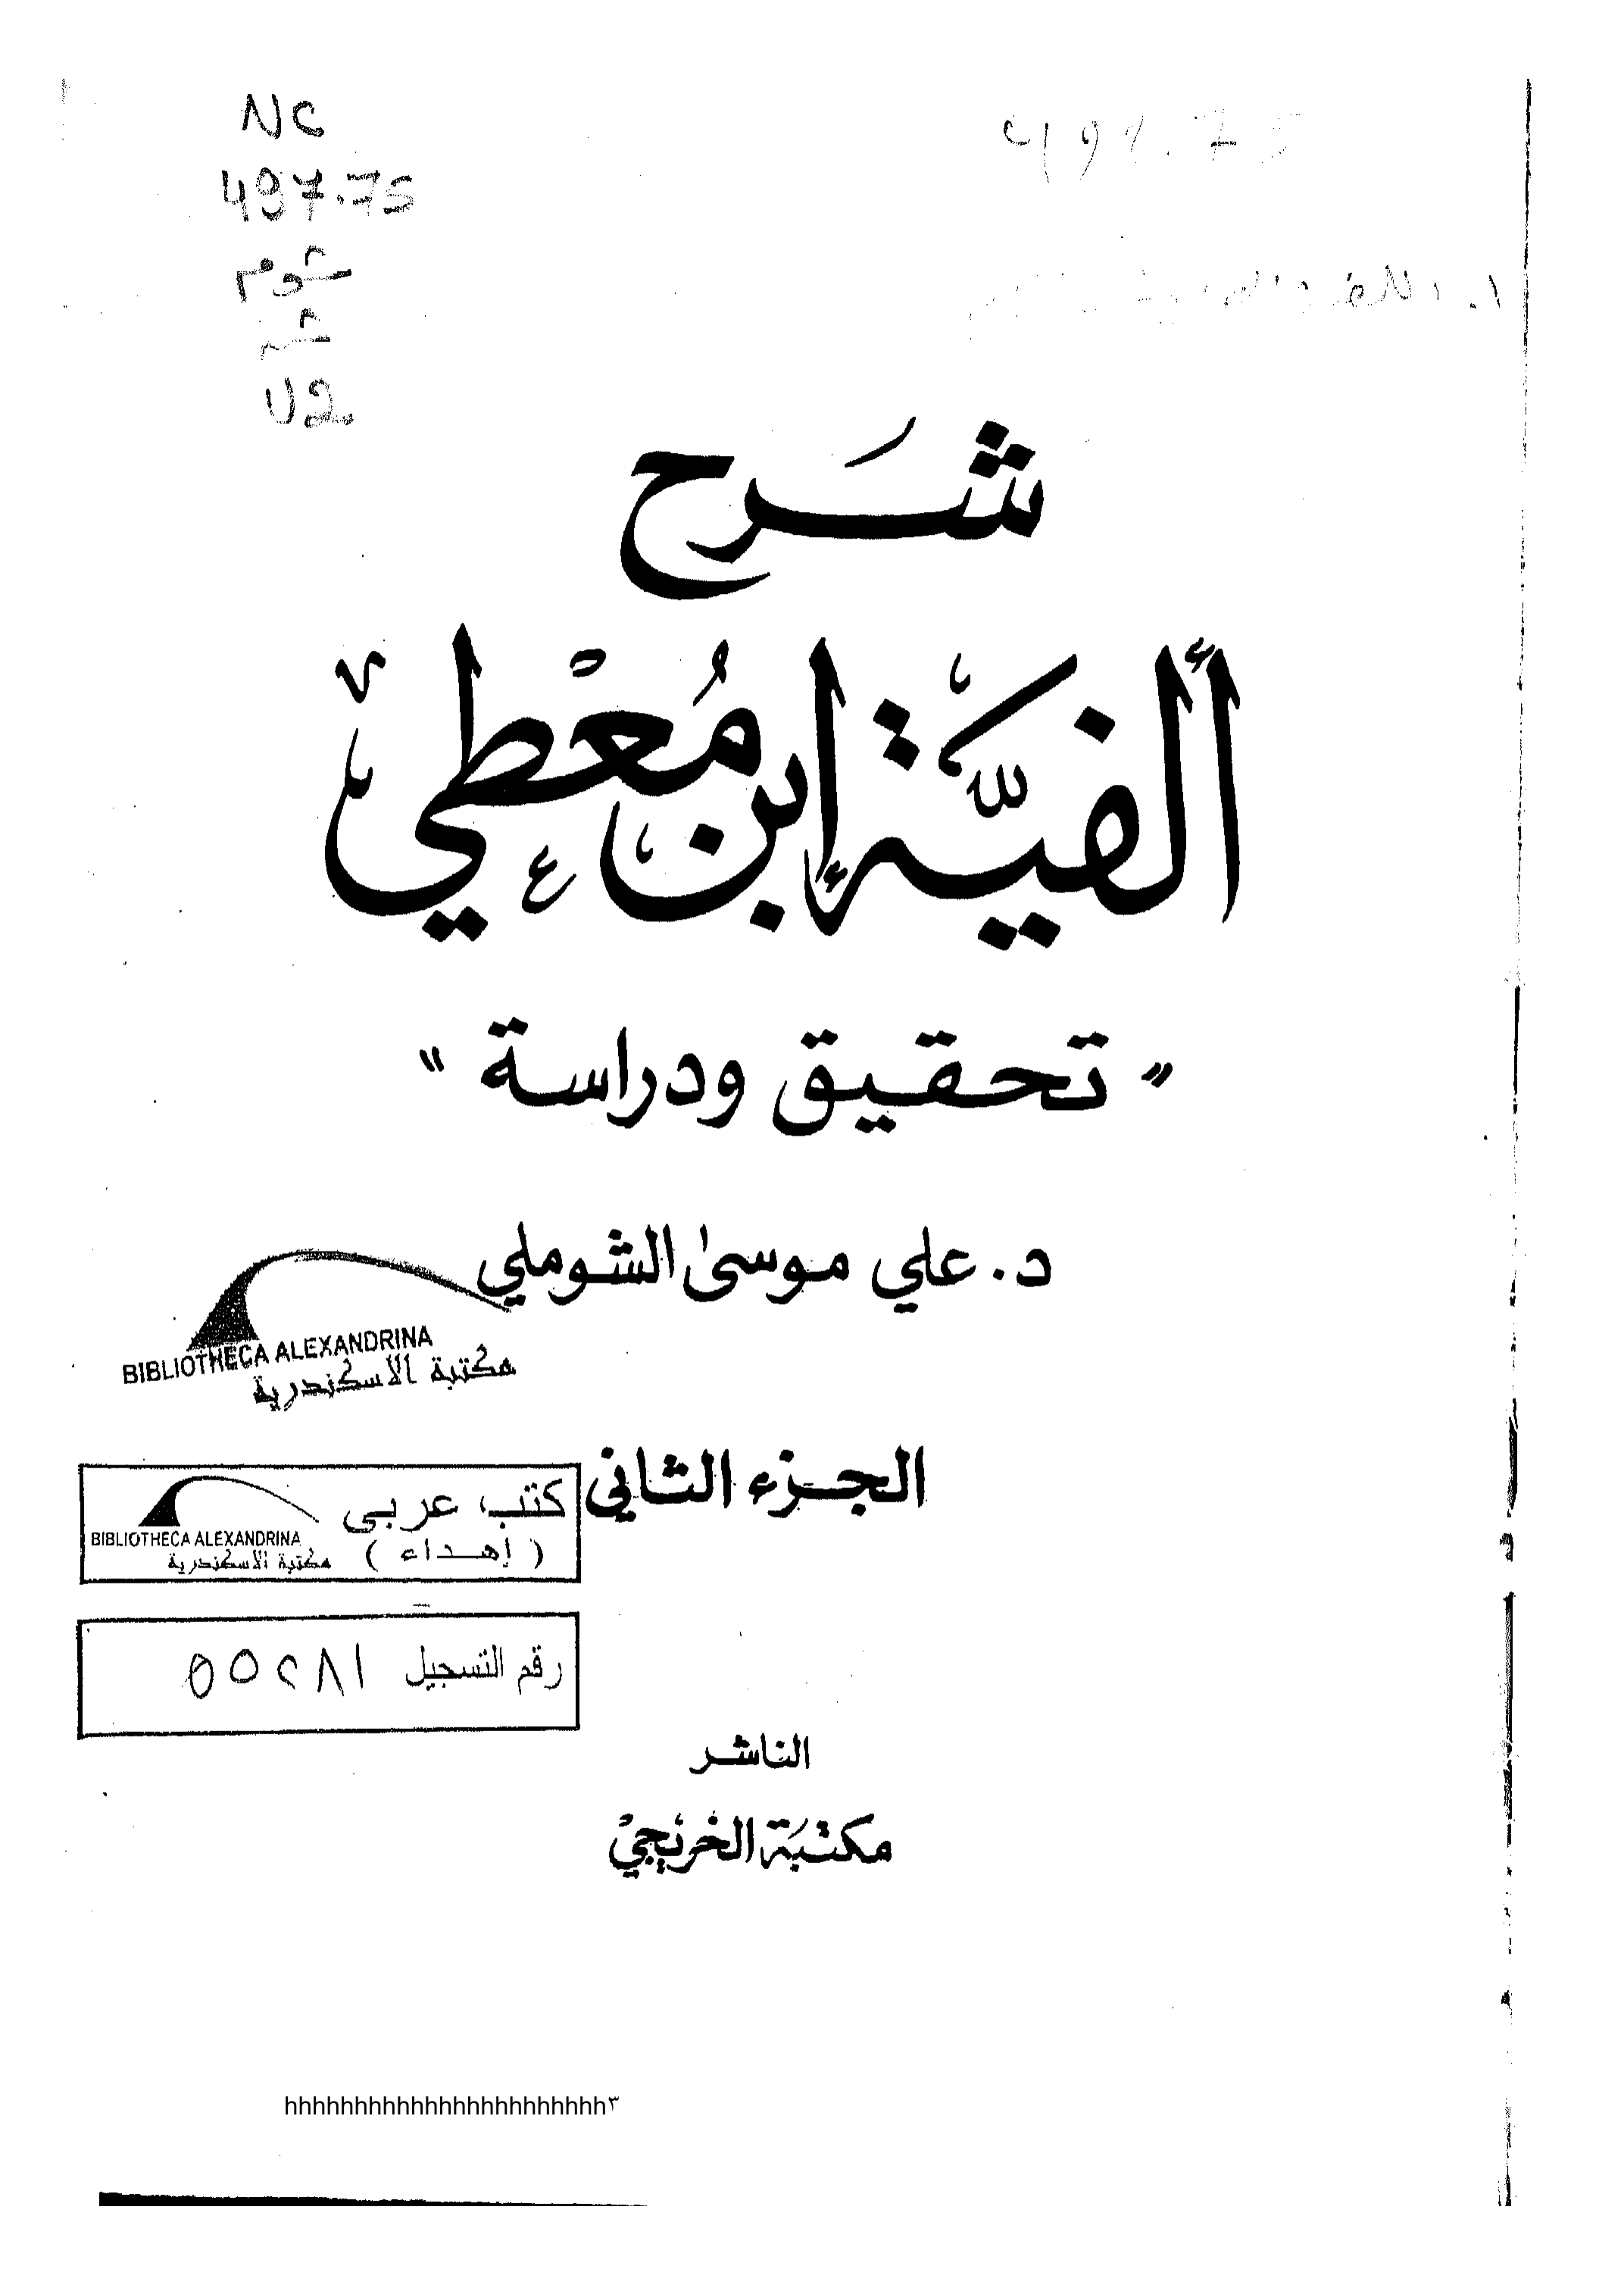 NC
497.75
شوم
شر
V2
شَرح
ألفيَّة إبن مُعْطي
"تحقيق ودراسة"
د. علي موسىٰ الشوملي
BIBLIOTHECA ALEXANDRINA
مكتبة الاسكندرية
الجزء الثاني
كتب عربى
( إهداء )
BIBLIOTHECA ALEXANDRINA
مكتبة الاسكندرية
رقم التسجيل ٥٥٢٨١
الناشر
مكتبَة الخريجيْ
hhhhhhhhhhhhhhhhhhhhhhh٣